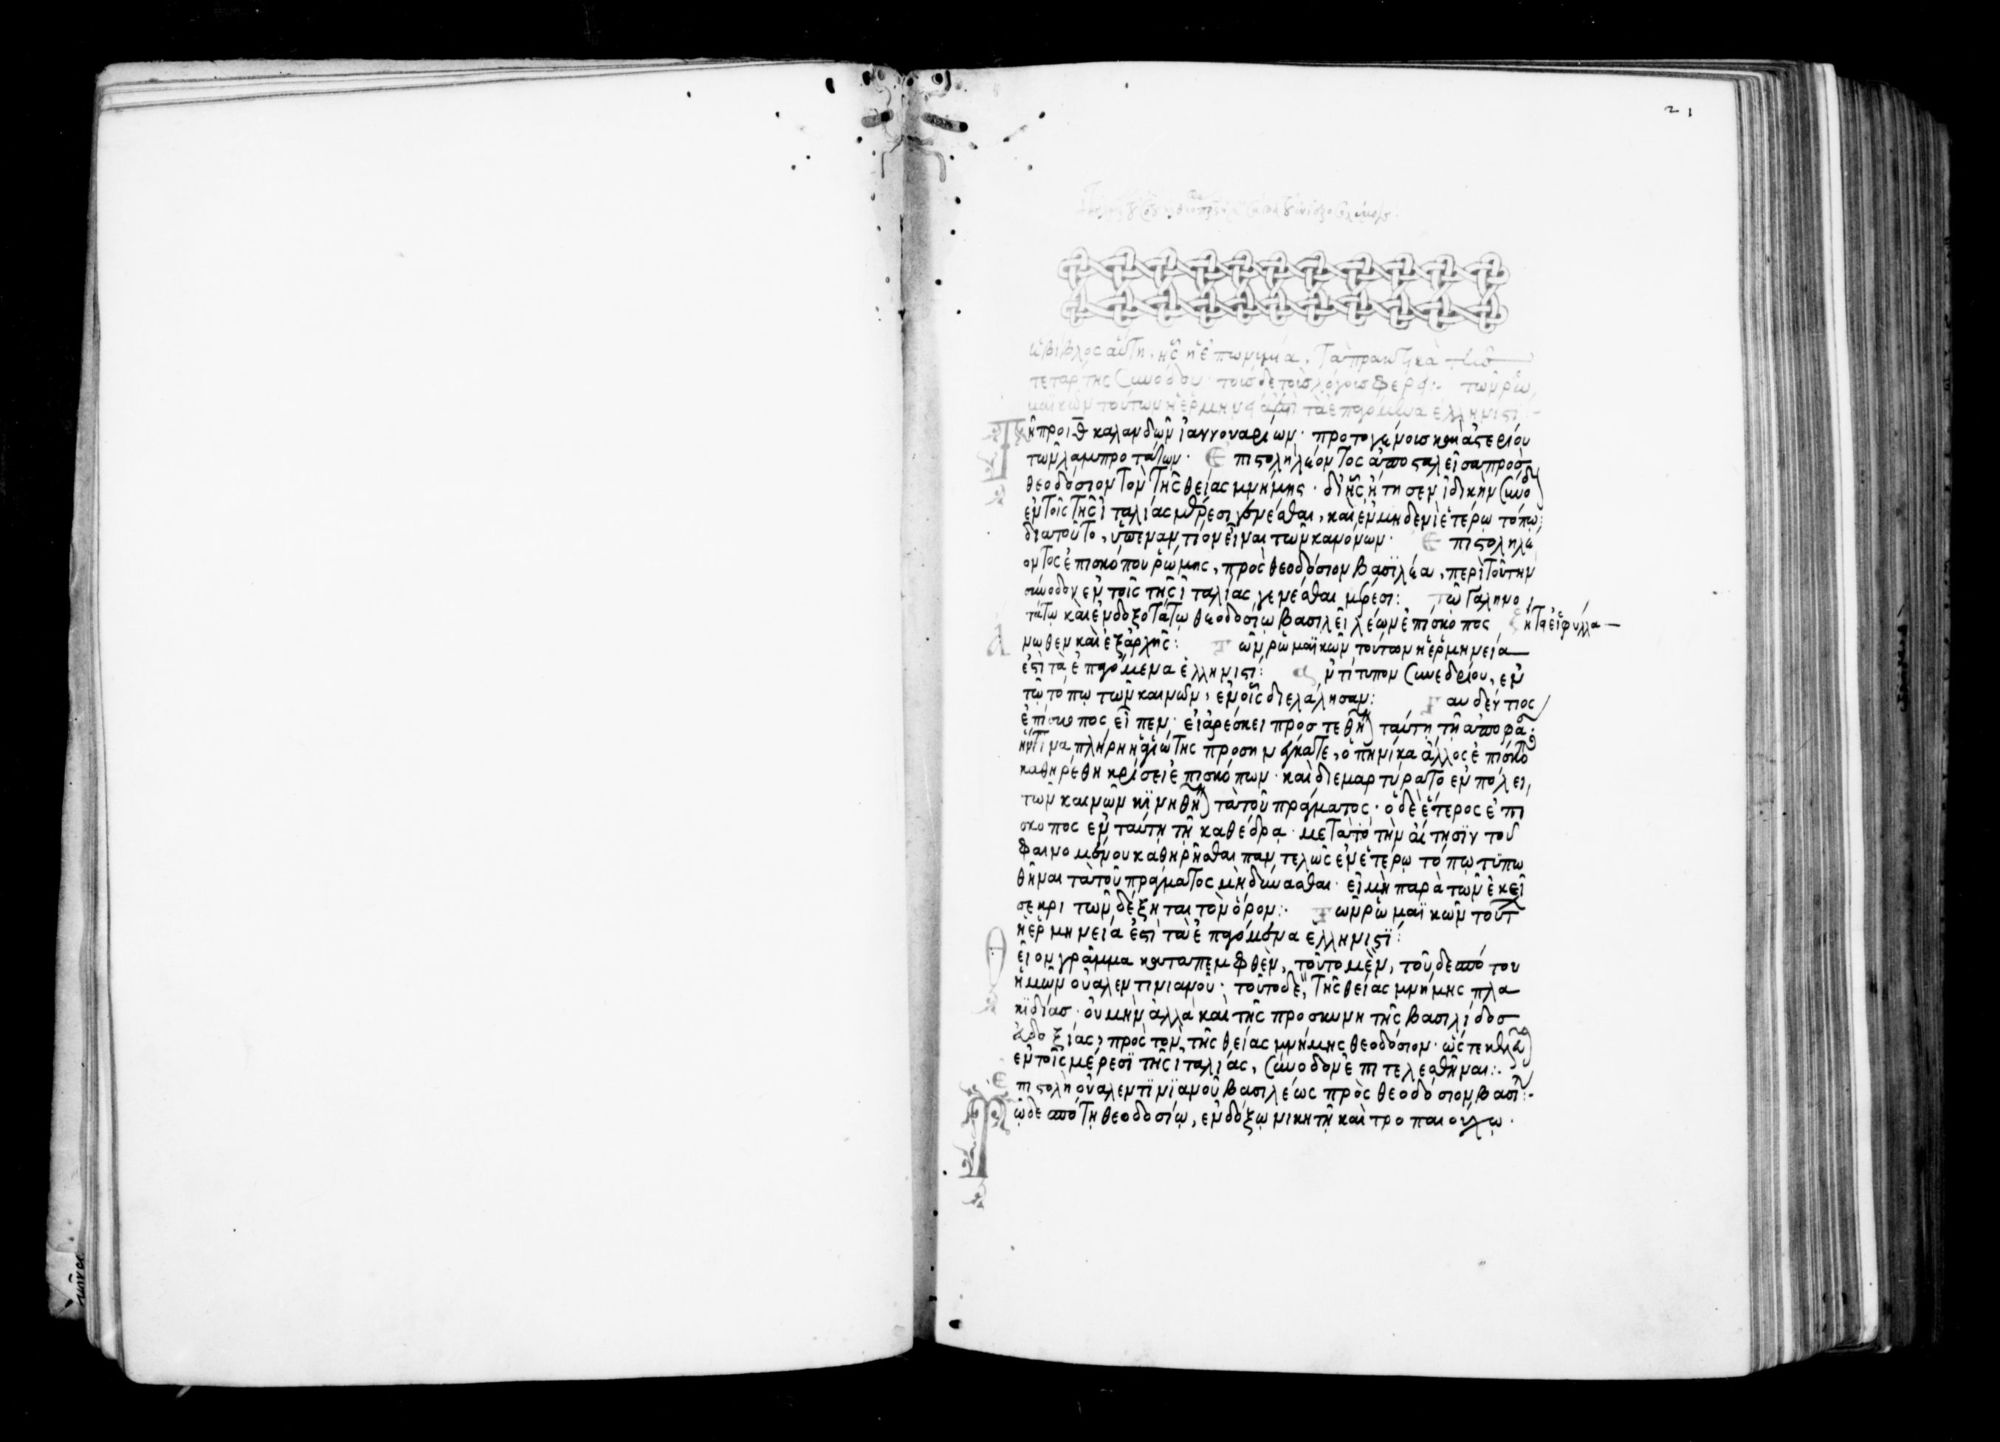 21
ἡ βίβλος αὕτη, ἧς ἡ ἐπωνυμία, Τὰ πρακτικὰ τῆς
τετάρτης Συνόδου· τοῖσδε τοῖς λόγοις φέρει· τῶν ῥω
μαϊκῶν τούτων ἡ ἑρμηνεία τὰ ἐπαγόμενα ἑλληνιστί
Τῇ πρὸ ιθ καλανδῶν ἰαννουαρίων· πρωτογένους καὶ ἀστερίου
τῶν λαμπροτάτων· Ἐπιστολὴ λέοντος ἀποσταλεῖσα πρὸς
θεοδόσιον τὸν τῆς θείας μνήμης· δι ἧς ᾔτησεν ἰδικὴν Συνοδ
ἐν τοῖς τῆς ἰταλίας μέρεσι γενέσθαι, καὶ ἐν μηδενὶ ἑτέρω τόπω·
διὰ τοῦτο, ὑπεναντίον εἶναι τῶν κανόνων· Ἐπιστολὴ λέ
οντος ἐπισκόπου ῥώμης, πρὸς θεοδόσιον βασιλέα, περὶ τοῦ τὴν
σύνοδον ἐν τοῖς τῆς ἰταλίας γενέσθαι μέρεσι: Τῶ γαληνο
τάτω καὶ ἐνδοξοτάτω θεοδοσίω βασιλεῖ λέων ἐπίσκοπος ζήτει εἰς φύλλα
ἄνωθεν καὶ ἐξαρχῆς: Τῶν ῥωμαϊκῶν τούτων ἡ ἑρμηνεία
ἐστὶ τὰ ἐπαγόμενα ἑλληνιστί: ἀντίτυπον Συνεδρίου, ἐν
τῶ τόπω τῶν καινῶν, ἐν οἷς διελάλησαν: Γαυδέντιος
ἐπίσκοπος εἶπεν· εἰ ἀρέσκει προστεθῆν ταύτη τῆ ἀποφά
ἥντινα πλήρη ἁγιότης προσηνέγκατε, ὁπηνίκα ἄλλος ἐπίσκοπ
καθηρέθη κρίσει ἐπισκόπων· καὶ διεμαρτύρατο ἐν πόλει,
τῶν καινῶν κινηθῆν τὰ τοῦ πράγματος· ὁ δὲ ἕτερος ἐπί
σκοπος ἐν ταύτη τῆ καθέδρα· μετὰ τὸ τὴν αἴτησιν τοῦ
φαινομένου καθηρῆσθαι παντελῶς ἐν ἑτέρω τόπω τυπω
θῆναι τὰ τοῦ πράγματος μὴ δύνασθαι· εἰ μὴ παρὰ τῶν ἐκεῖ
σε κριτῶν δέξηται τὸν ὅρον: Τῶν ῥωμαϊκῶν τούτ
ἡ ἑρμηνεία ἐστὶ τὰ ἐπαγόμενα ἑλληνιστί:
Θεῖον γράμμα καταπεμφθὲν, τοῦτο μὲν, τοῦ δεσπότου
ἡμῶν οὐαλεντινιανοῦ· τοῦτο δὲ, τῆς θείας μνήμης πλα
κιδίας· οὐ μὴν ἀλλὰ καὶ τῆς προσκυνητῆς βασιλίδος
εὐδοξίας, πρὸς τὸν τῆς θείας μνήμης θεοδόσιον· ὥστε
ἐν τοῖς μέρεσι τῆς ἰταλίας, Σύνοδον ἐπιτελεσθῆναι:
Ἐπιστολὴ οὐαλεντινιανοῦ βασιλέως πρὸς θεοδόσιον βασι
Τῶ δεσπότη θεοδοσίω, ἐνδόξω νικητῆ καὶ τροπαιούχω·